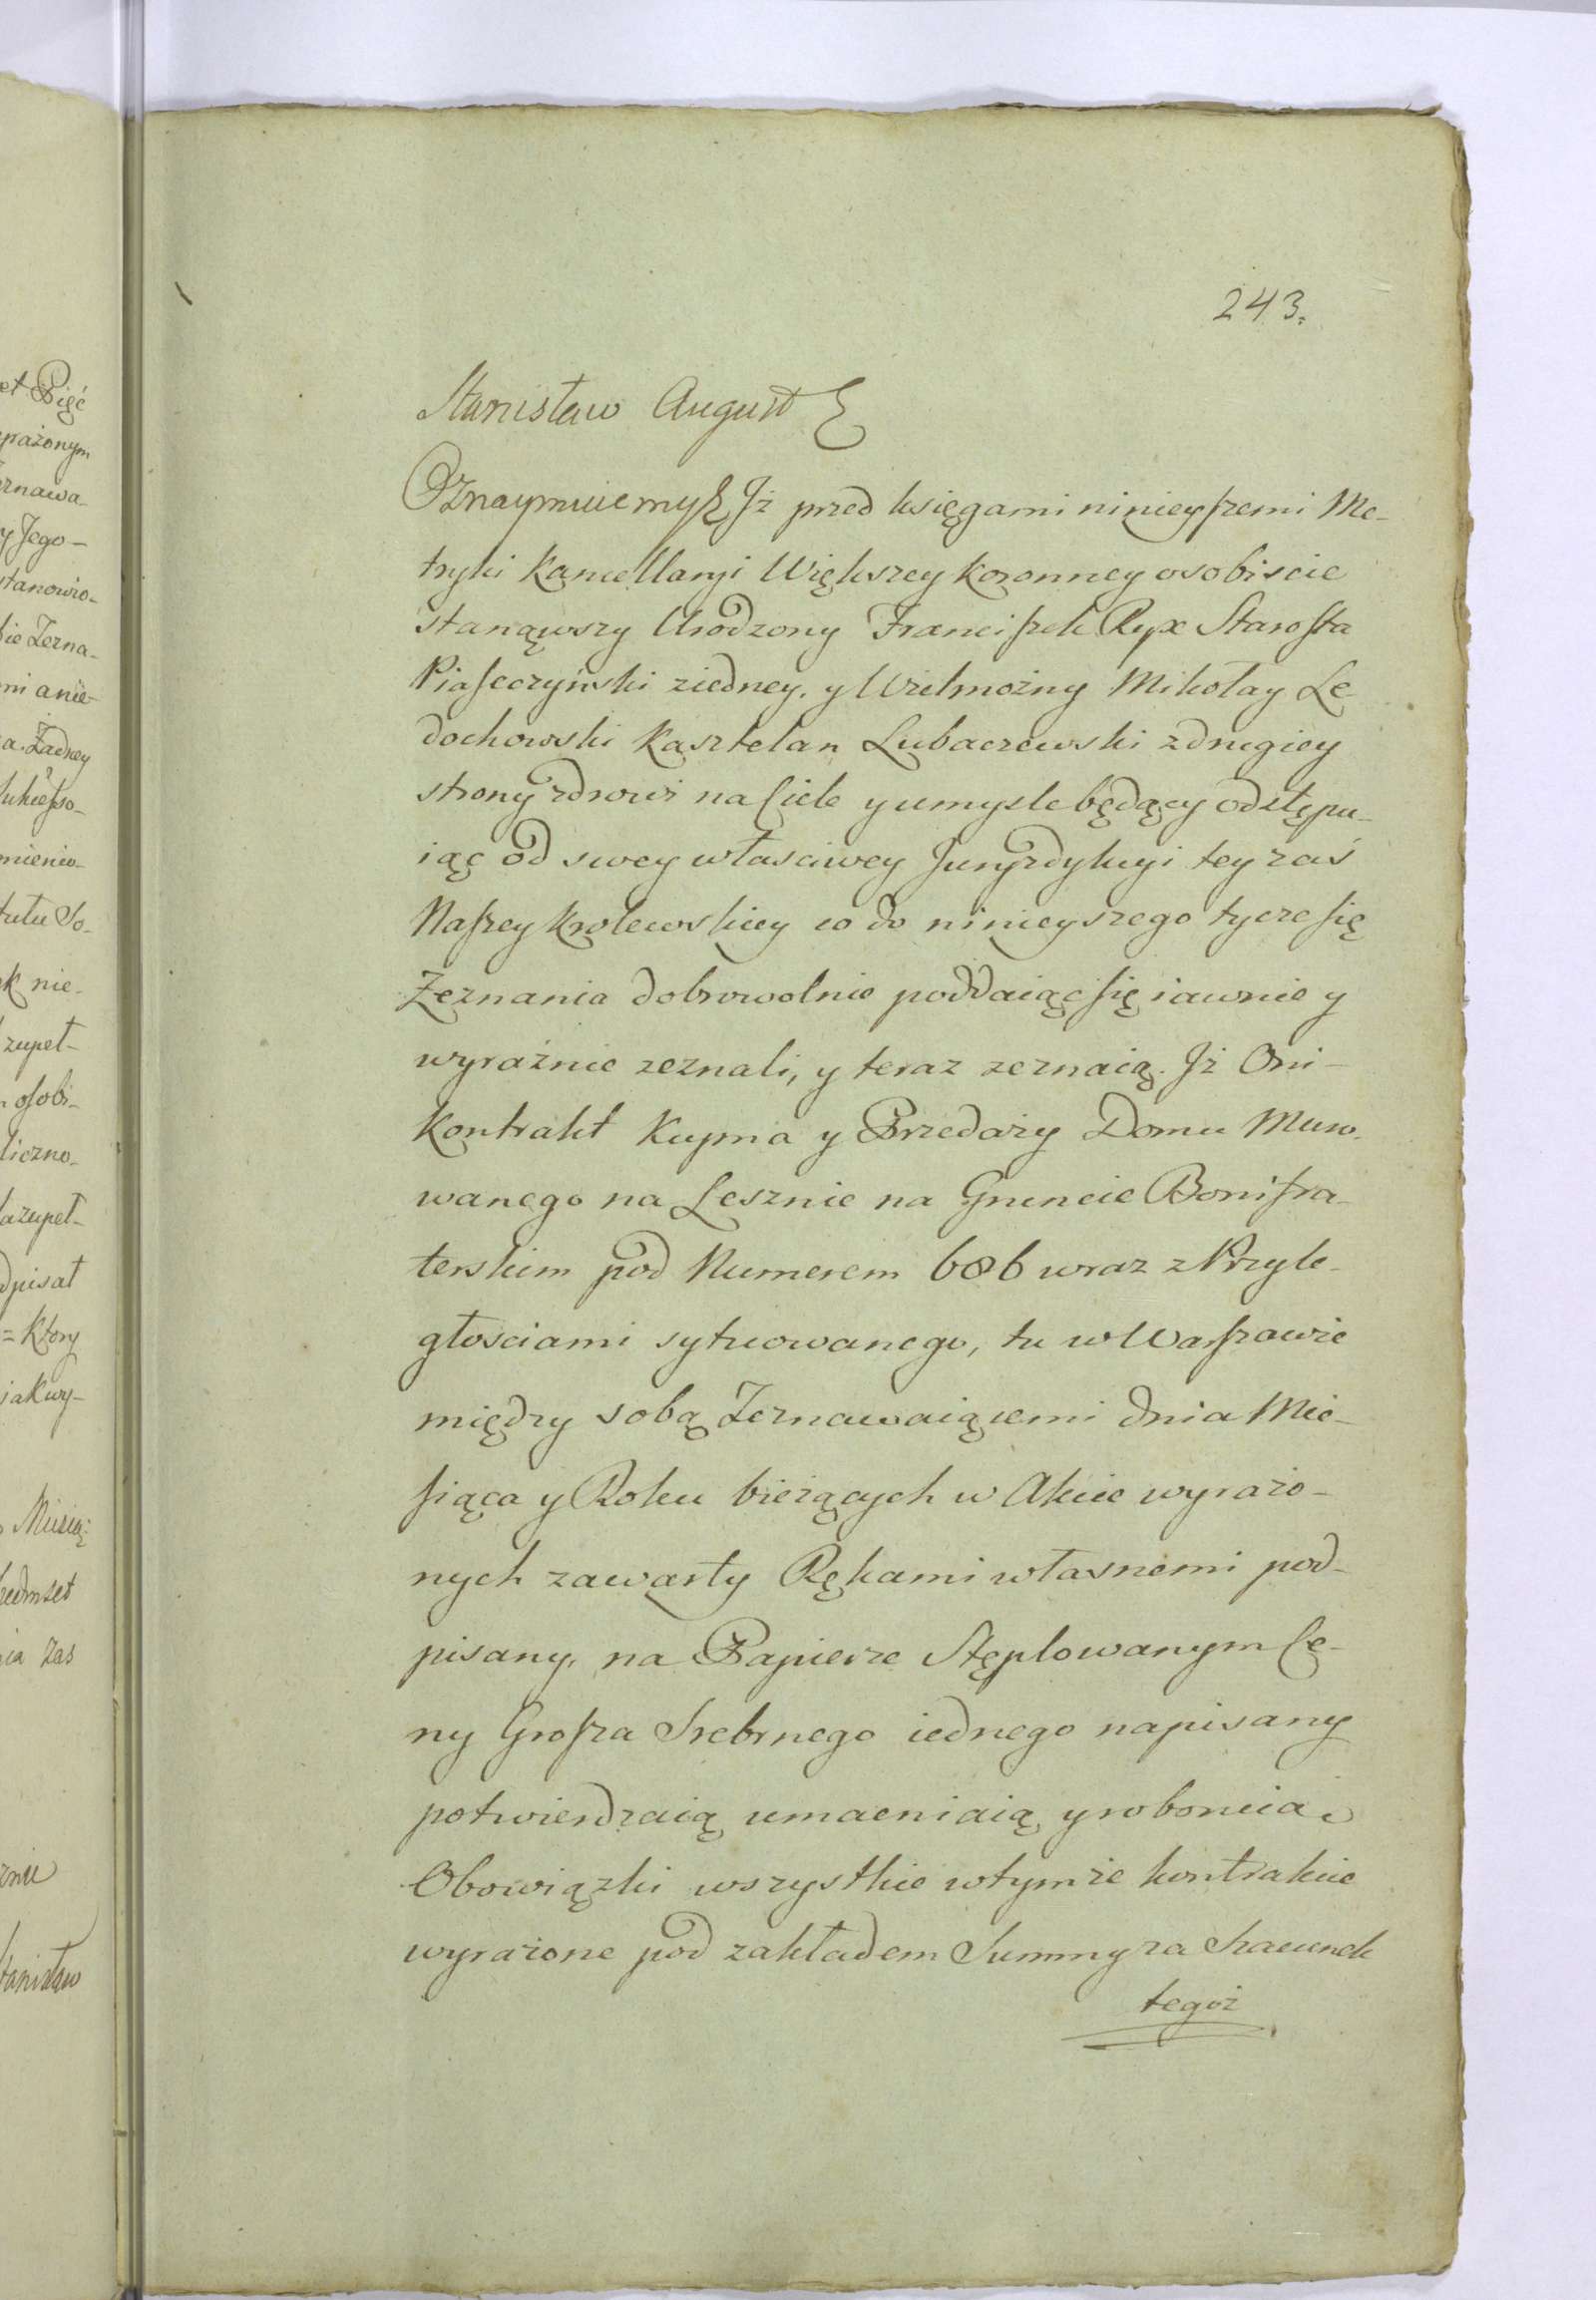 243.
Stanisław August &
Oznaymuiemy & Jż przed księgami ninieyszemi Me-
tryki Kancellaryi Większey Koronney osobiscie
stanąwszy Urodzony Franciszek Ryx Starosta
Piaseczyński ziedney, y Wielmożny Mikołay Le-
dochowski Kasztelan Lubaczewski zdrugiey
strony zdrowi na Ciele y umysle będący odstępu-
iąc od swey własciwey Juryzdykcyi tey zaś
Naszey Krolewskiey co do ninieyszego tycze się
Zeznania dobrowolnie poddaiąc się iawnie y
wyraźnie zeznali, y teraz zeznaią. Jż Oni-
Kontrakt Kupna y Przedaży Domu Muro-
wanego na Lesznie na Gruncie Bonifra-
terskim pod Numerem 686 wraz z Przyle-
głosciami sytuowanego, tu w Warszawie
między sobą Zeznawaiącemi dnia Mie-
siąca y Roku bieżących w Akcie wyrażo-
nych zawarty Rękami własnemi pod-
pisany, na Papierze Stęplowanym Ce-
ny Grosza Srebrnego iednego napisany
potwierdzaią umacniaią y roboruią
Obowiązki wszystkie wtymże kontrakcie
wyrażone pod zakładem Summy za Szacunek
tegoż
et Pięć
ernawa-
y Jego-
stanowio-
sie Zezna-
mi anie-
a. Żadney
mienio-
tutu So-
k nie-
zupeł-
osobi-
liczno-
azupeł-
dpisał
= Ktory
iak wy-
Miesią:
siedmset
ia Zas
znie
tanisław